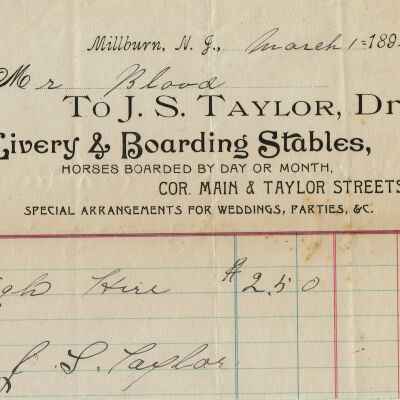 Millburn, N. J., March 1 = 189
Mr Blood
To J. S. Taylor, Dr
Livery & Boarding Stables,
HORSES BOARDED BY DAY OR MONTH,
COR. MAIN & TAYLOR STREETS
SPECIAL ARRANGEMENTS FOR WEDDINGS, PARTIES, &C.
gh Hire $2.50
J. S. Taylor